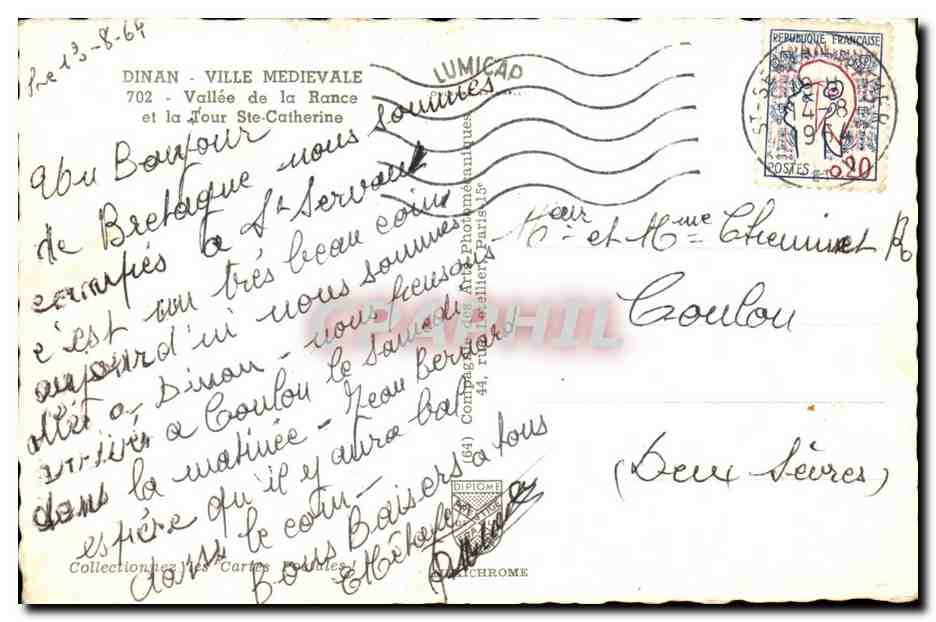 Le 13-8-64
DINAN - VILLE MEDIEVALE
702 - Vallée de la Rance
et la Tour Ste-Catherine
Un Bonjour
de Bretagne nous sommes
campés a St Servant
c'est un très beau coin
aujourd'ui nous sommes
allés a Dinan - nous pensons
arrivés a Coulon le Samedi
dans la matinée - Jean Bernard
espère qu'il y aura bal
dans le coin -
Bons Baisers a tous
Collectionnez les Cartes Postales !
LUMICAP
(64) Compagnie des Arts Photomécaniques
44, rue Letellier, Paris-15e
DIPLOME
LUMICHROME
REPUBLIQUE FRANÇAISE
POSTES 0,20
ST-SERVAN
14-8
Mr et Mme R
Coulon
(Deux Sèvres)
CPAPHIL